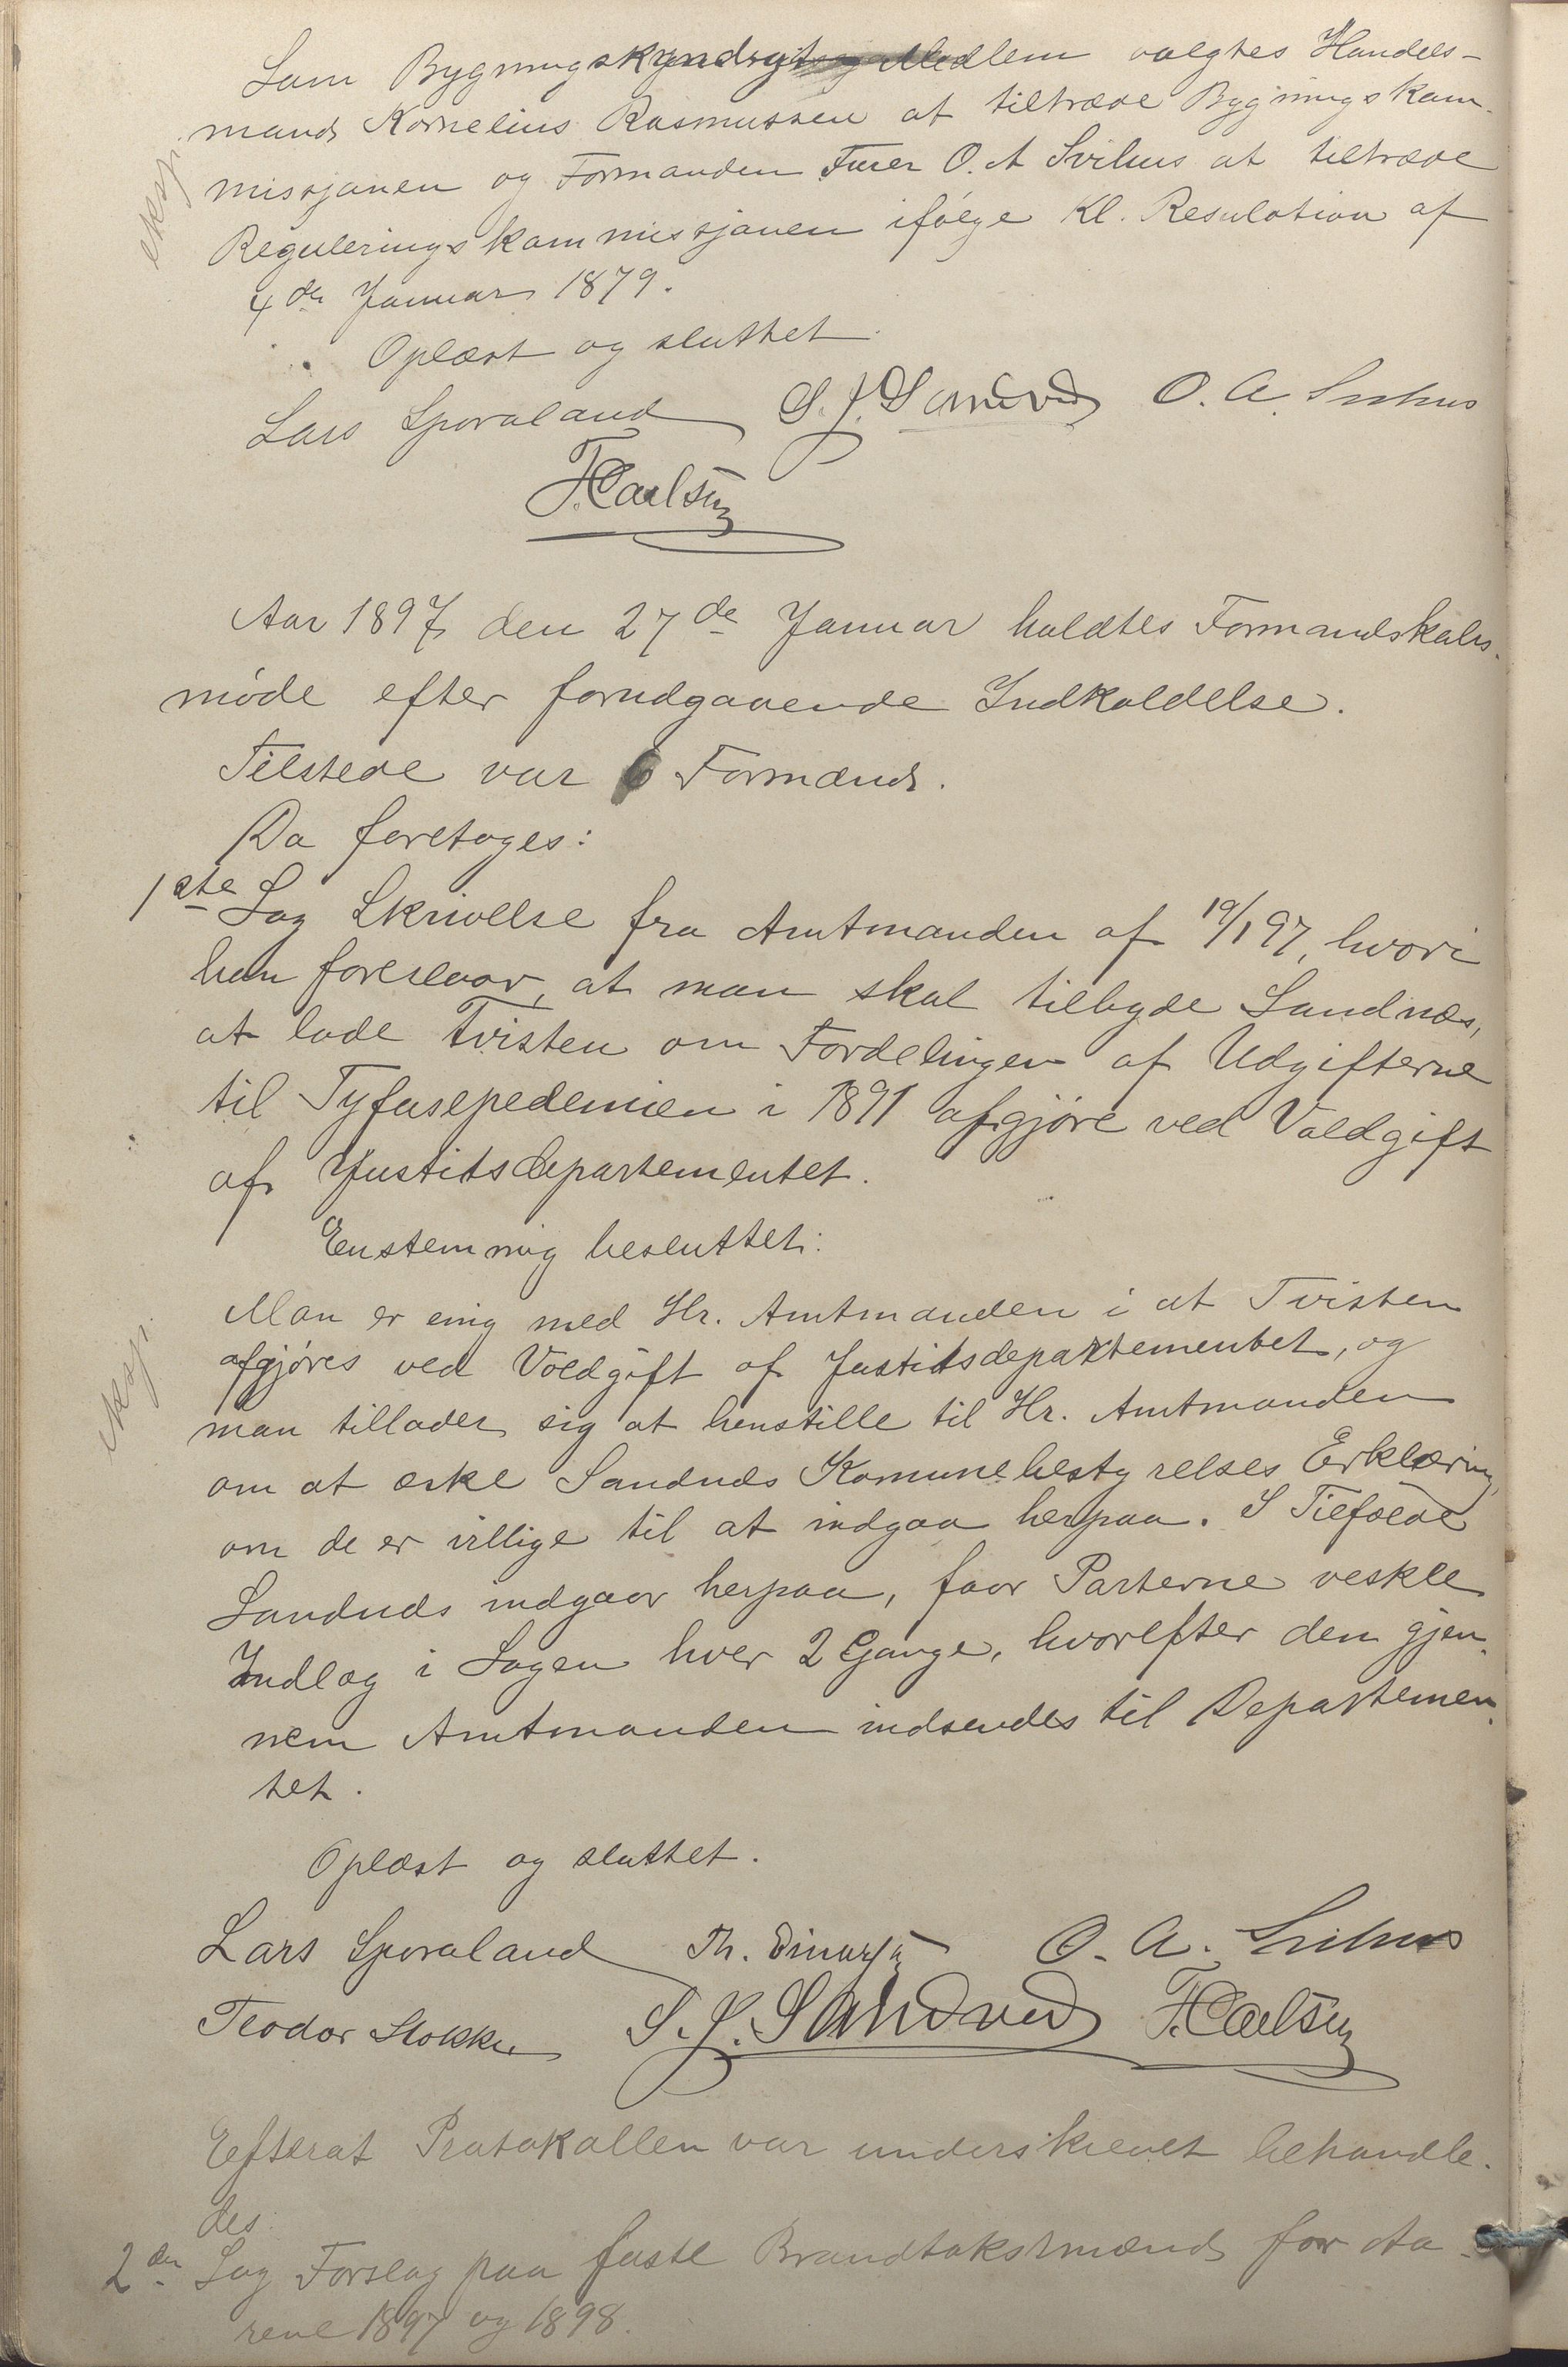 Som Bygningskyndigt Medlem valgtes Handels-
mand Kornelius Rasmussen at tiltræde Bygningskom-
missjonen og Formanden Furer O. A Svihus at tiltræde
eksp.
Reguleringskommissjonen ifølge Kl. Resulotion af
4de Januar 1879.
Oplæst og sluttet
Lars Sporaland S. J. Sandved O. A. Svihus
F. Carlsen
Aar 1897 den 27de Januar holdtes Formandskabs-
møde efter forudgaaende Indkaldelse.
Tilstede var 6 Formænd.
Da foretoges:
1ste Sag Skrivelse fra Amtmanden af 19/1 97, hvori
han foreslaar, at man skal tilbyde Sandnæs,
at lade Tvisten om Fordelingen af Udgifterne
til Tyfusepedemien i 1891 afgjøre ved Voldgift
af Justitsdepartementet.
Enstemmig besluttet:
Man er enig med Hr. Amtmanden i at Tvisten
eksp.
afgjøres ved Voldgift af Justitsdepartementet, og
man tillader sig at henstille til Hr. Amtmanden
om at æske Sandnæs Komunebestyrelses Erklæring,
om de er villige til at indgaa herpaa. I Tilfælde
Sandnæs indgaar herpaa, faar Parterne veksle
Indlæg i Sagen hver 2 Gange, hvorefter den gjen-
nem Amtmanden indsendes til Departemen-
tet.
Oplæst og sluttet.
Lars Sporaland Th. Einarsen O. A. Svihus
Teodor Stokke S. J. Sandved F. Carlsen
Efterat Protokollen var underskrevet behandle-
des
2den Sag Forslag paa faste Brandtakstmænd for Aa-
rene 1897 og 1898.